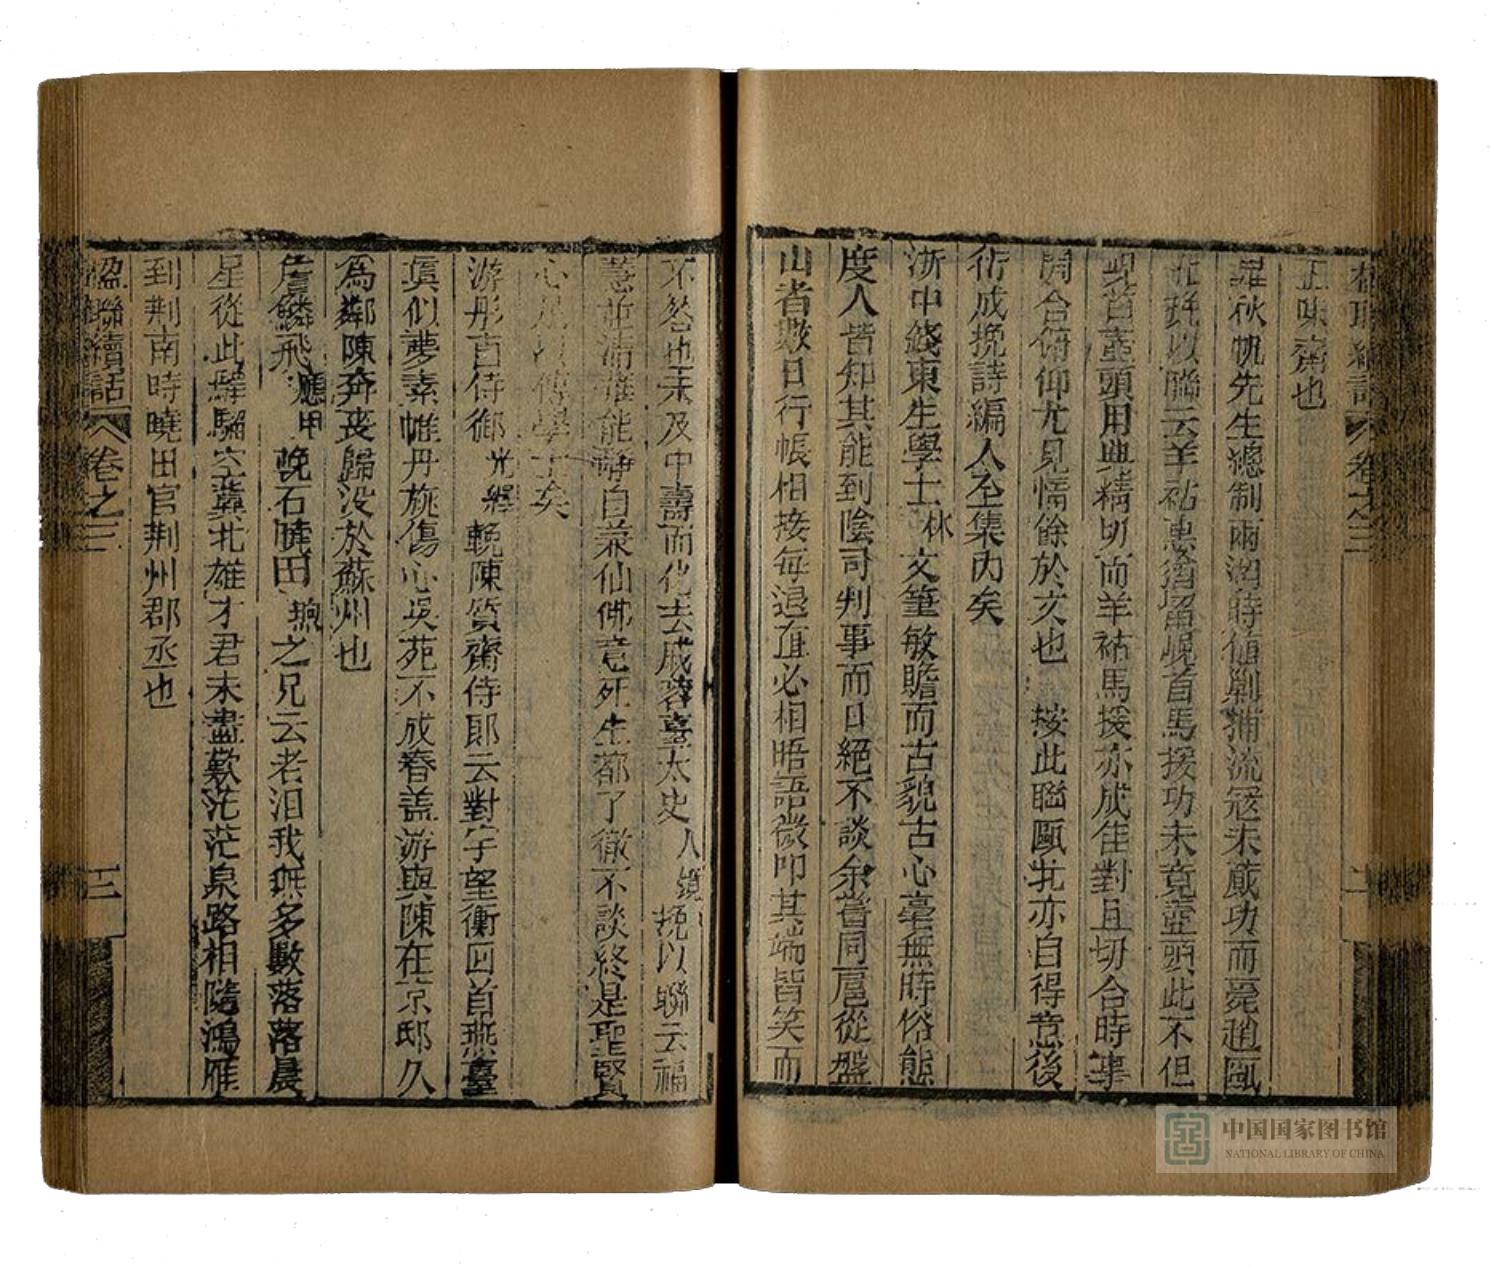 楹聯續話 卷之三 二
正味齋也
星秋帆先生總制兩湖時值剿捕流寇未蕆功而薨趙甌
北輓以聯云羊祜惠猶留峴首馬援功未竟壺頭此不但
峴首壺頭用典精切而羊祜馬援亦成佳對且切合時事
開合俯仰尤見情餘於文也 按此聯甌北亦自得意後
衍成挽詩編入全集內矣
浙中錢東生學士林文筆敏贍而古貌古心毫無時俗態
度人皆知其能到陰司判事而口絕不談余嘗同扈從盤
山者數日行帳相接每退直必相晤語微叩其端皆笑而
不答也未及中壽而化去戚蓉臺太史人鏡挽以聯云福
慧並清雄能靜自兼仙佛意死生都了徹不談終是聖賢
游彤卣侍御光繹輓陳質齋侍郎云對宇望衡回首燕臺
真似夢素帷丹旐傷心吳苑不成春蓋游與陳在京邸久
為鄰陳奔喪歸沒於蘇州也
詹鱗飛應甲輓石曉田之兄云老淚我無多數落落晨
星從此驊騮空冀北雄才君未盡歎茫茫泉路相隨鴻雁
到荆南時曉田官荆州郡丞也
楹聯續話 卷之三 三
中国国家图书馆
NATIONAL LIBRARY OF CHINA